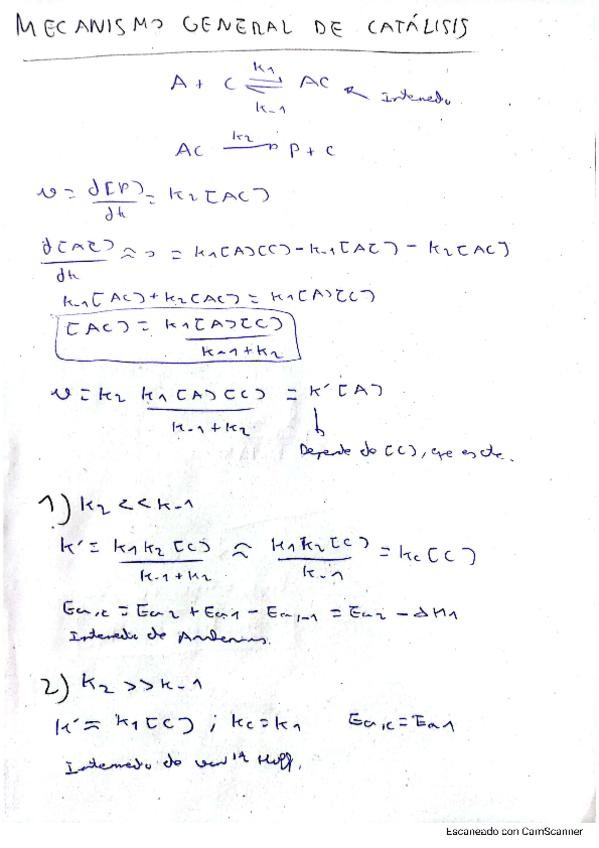 MECANISMO GENERAL DE CATÁLISIS
A + C ⇌ AC ← Intermedo
k1
k-1
AC →k2 P + C
v = d[P]/dt = k2[AC]
d[AC]/dt ≈ 0 = k1[A][C] - k-1[AC] - k2[AC]
k-1[AC] + k2[AC] = k1[A][C]
[AC] = k1[A][C]/(k-1 + k2)
v = k2 k1[A][C]/(k-1 + k2) = k'[A]
Depende de [C], que es cte.
1) k2 << k-1
k' = k1k2[C]/(k-1 + k2) ≈ k1k2[C]/k-1 = kc[C]
Ea,c = Ea2 + Ea1 - Ea,-1 = Ea2 - ΔH1
Intermedo de Arrhenius.
2) k2 >> k-1
k' = k1[C] ; kc = k1 Ea,c = Ea1
Intermedo de van't Hoff.
Escaneado con CamScanner